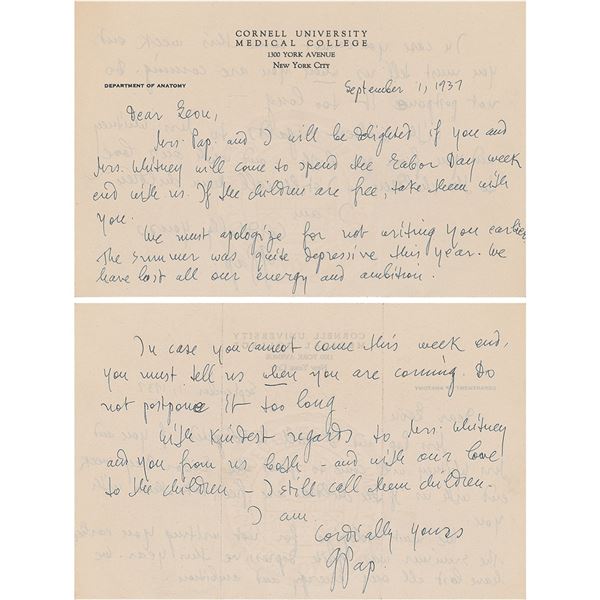 CORNELL UNIVERSITY
MEDICAL COLLEGE
1300 YORK AVENUE
NEW YORK CITY
DEPARTMENT OF ANATOMY
September 1, 1937
Dear Leon,
Mrs. Pap. and I will be delighted if you and
Mrs. Whitney will come to spend the Labor Day week
end with us. If the children are free, take them with
you.
We must apologize for not writing you earlier
The summer was quite depressive this year. We
have lost all our energy and ambition.
In case you cannot come this week end,
you must tell us when you are coming. Do
not postpone it too long
With kindest regards to Mrs. Whitney
and you from us both - and with our love
to the children - I still call them children.
I am
Cordially yours
GPap.